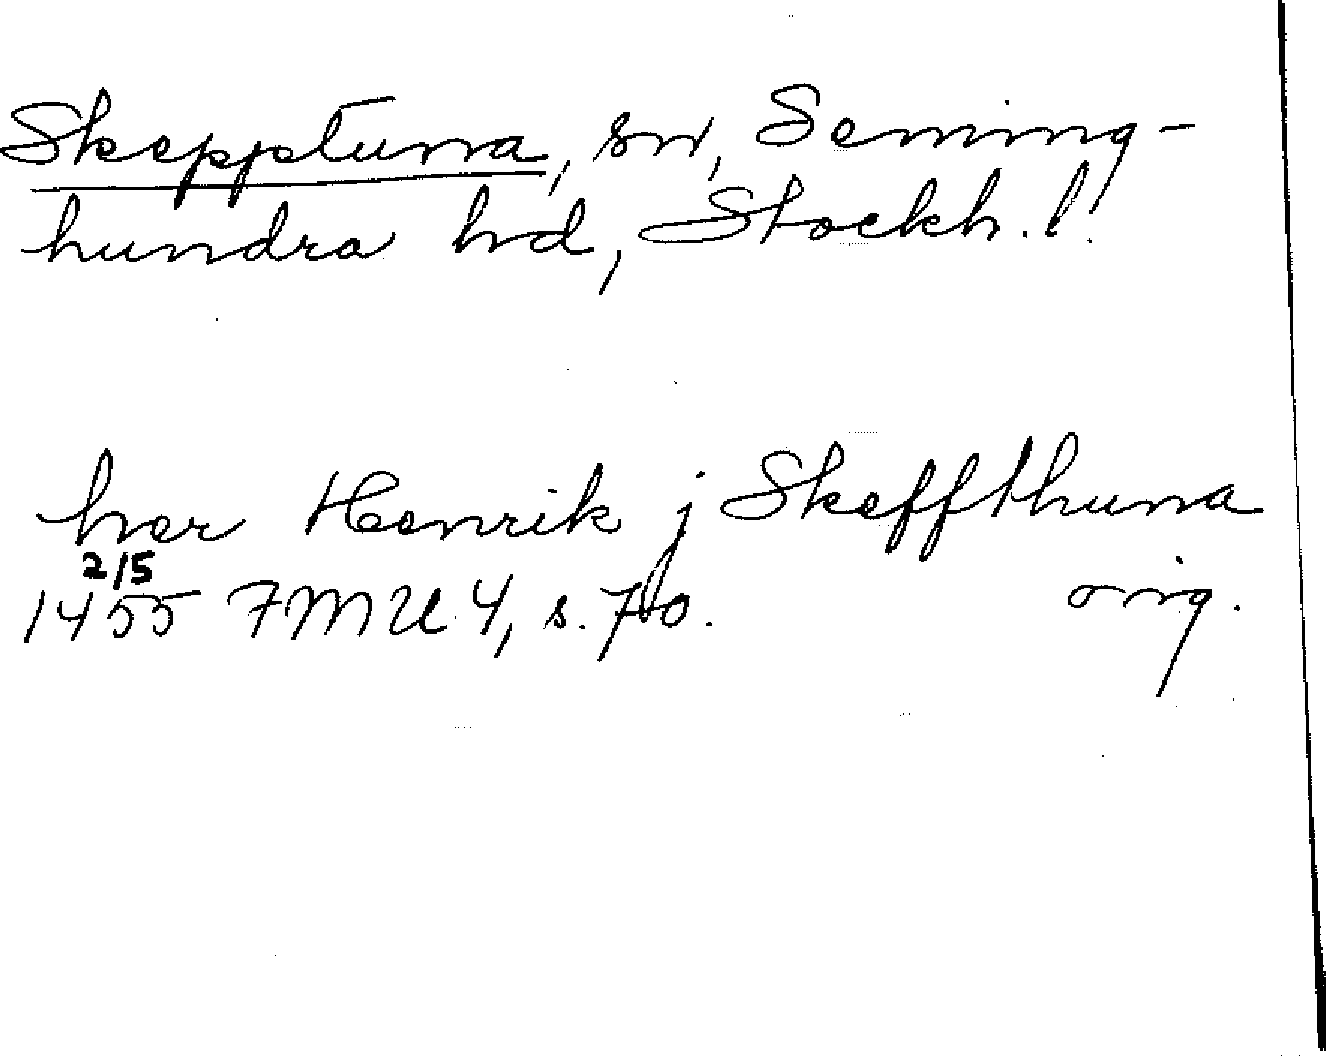 Skepptuna, sn, Seming-
hundra hd, Stockh. l.
her Henrik j Skeffthuna
2/5
1455 FMU 4, s. 70. orig.